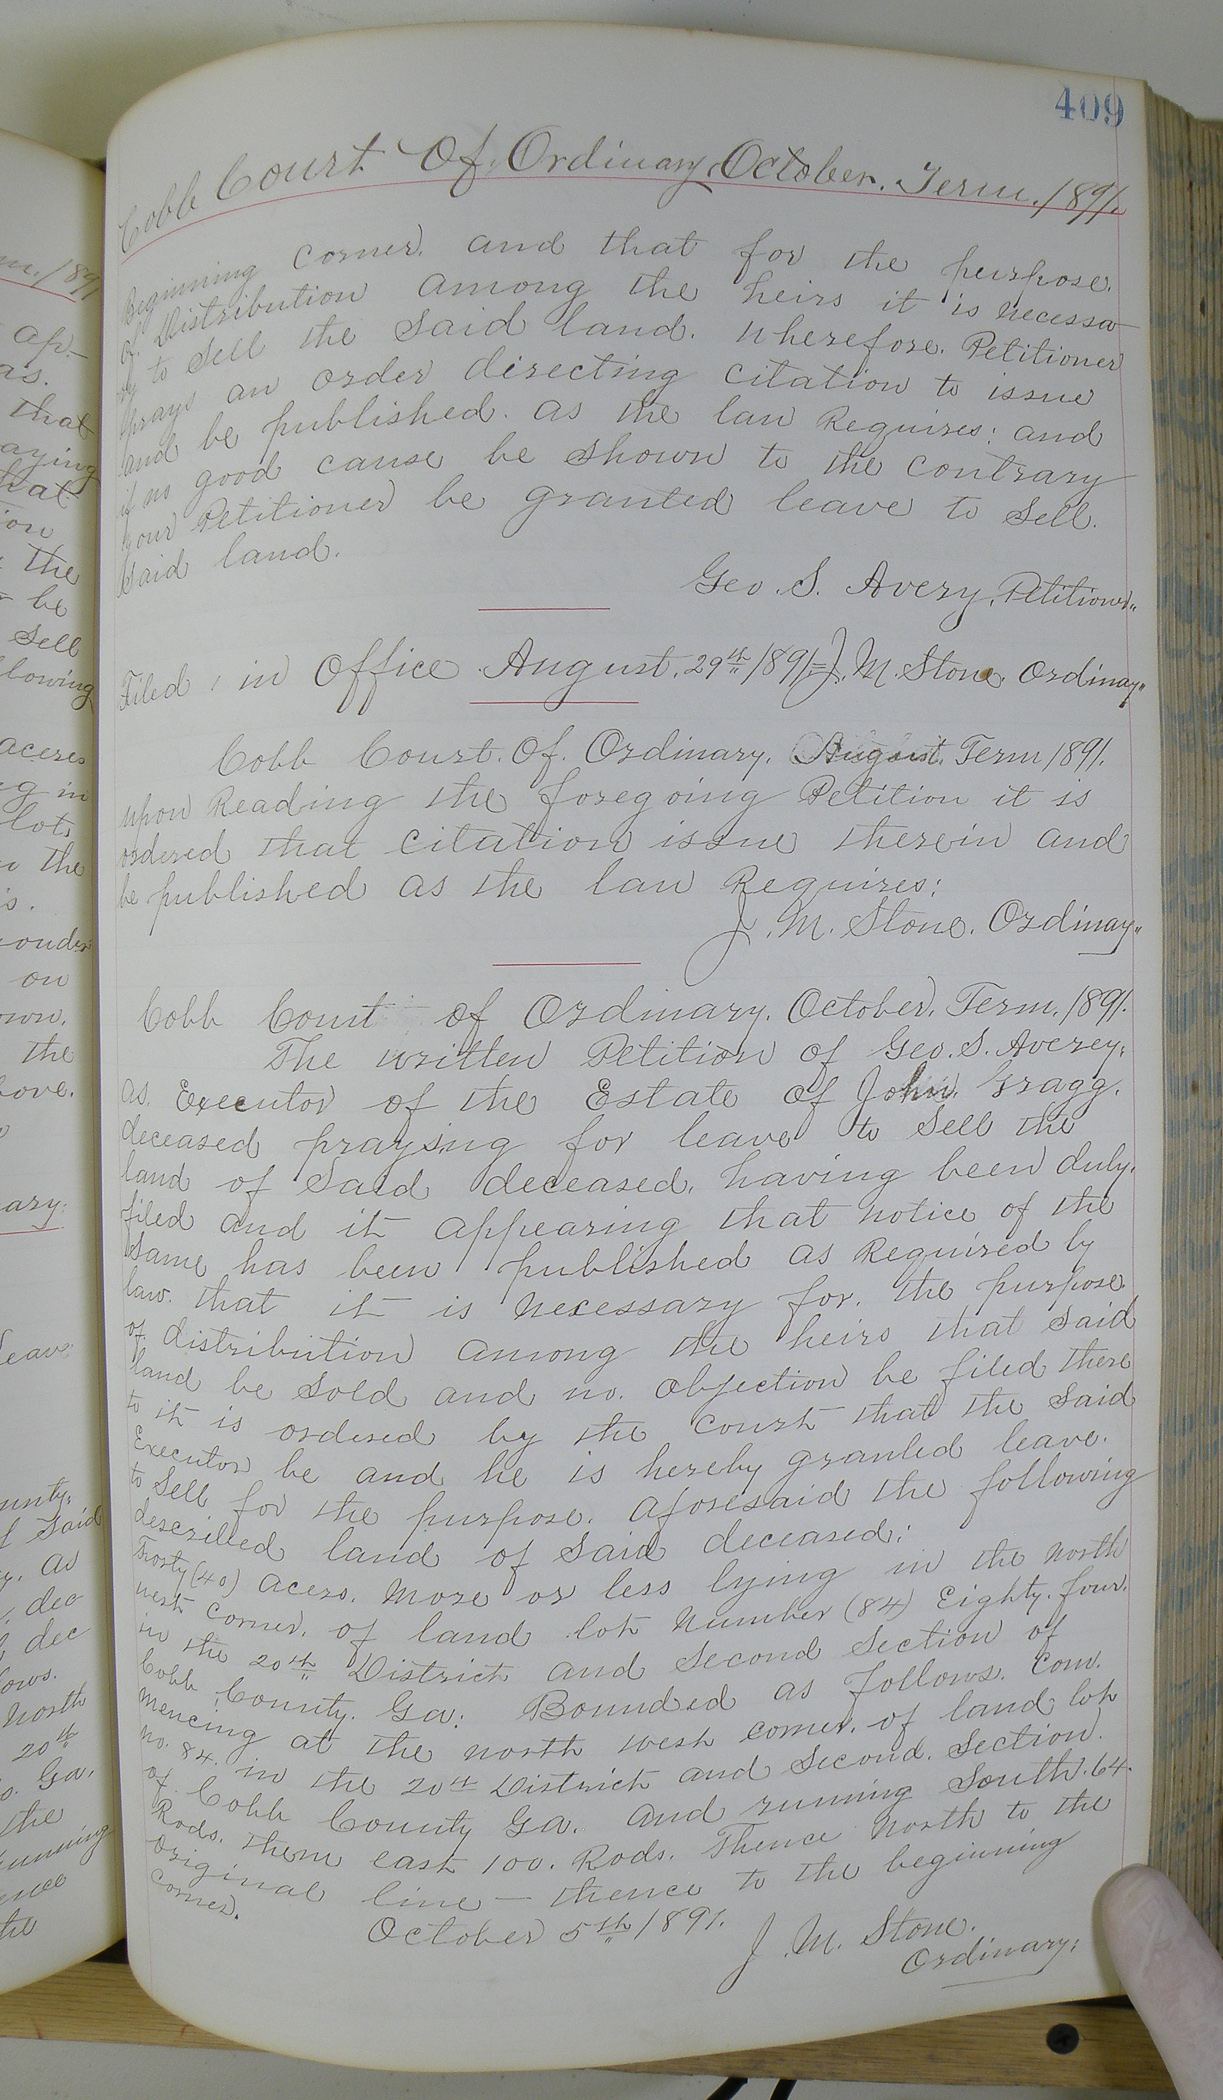 409
Cobb Court Of Ordinary, October. Term. 1891.
Beginning corner. and that for the purpose.
of Distribution among the heirs it is necessa
ry to Sell the Said land. Wherefore. Petitioner
prays an order directing citation to issue
and be published. as the law Requires: and
if no good cause be shown to the contrary
your Petitioner be granted leave to Sell.
Said land.
Geo. S. Avery, Petitioner"
Filed in Office August. 29th 1891= J. M. Stone. Ordinay"
Cobb Court. Of. Ordinary. August. Term 1891.
upon Reading the foregoing Petition it is
ordered that citation issue therein and
be published as the law Requires:
J. M. Stone. Ordinay"
Cobb Court of Ordinary. October. Term. 1891.
The written Petition of Geo. S. Averey.
as. Executor of the Estate of John. Gragg.
deceased praying for leave to Sell the
land of Said deceased. having been duly.
filed and it appearing that notice of the
Same has been published as Required by
law. that it is necessary for. the purpose
of distribution among the heirs that Said
land be Sold and no. objection be filed there
to it is ordered by the court that the Said
Executor be and he is hereby granted leave.
to Sell for the purpose. aforesaid the following
described land of Said deceased:
Forty (40) acers. More or less lying in the North
west corner. of land lot Number (84) Eighty. four.
in the 20th District and Second Section of
Cobb County. Ga: Bounded as follows. Com.
mencing at the north west corner. of land lot
No. 84. in the 20th District and Second. Section.
of Cobb County Ga. and running South. 64.
Rods. thence east 100. Rods. Thence North to the
original line — thence to the beginning
corner.
October 5th 1891.
J. M. Stone.
Ordinary: